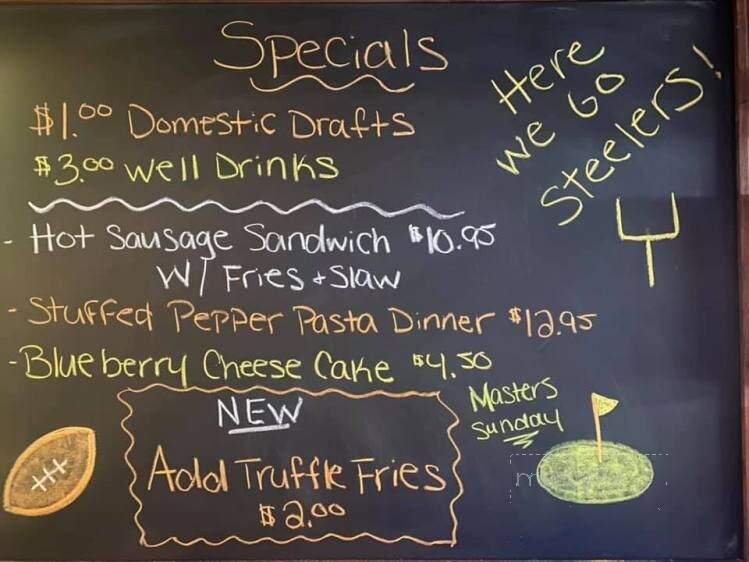 Specials
$1.00 Domestic Drafts
$3.00 Well Drinks
- Hot Sausage Sandwich $10.95
W/ Fries + Slaw
- Stuffed Pepper Pasta Dinner $12.95
- Blueberry Cheese Cake $4.50
NEW
Add Truffle Fries
$2.00
Here
we Go
Steelers!
Masters
Sunday